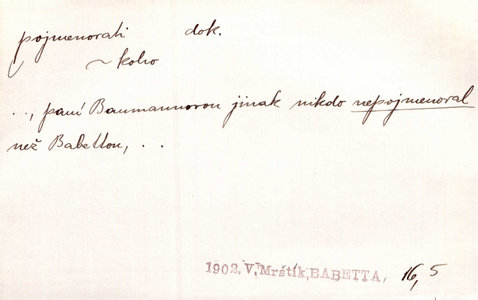 pojmenovati dok.
~ koho
..., paní Baumannovou jinak nikdo nepojmenoval
než Babettou, ..
1902, V. Mrštík, BABETTA, 16,5